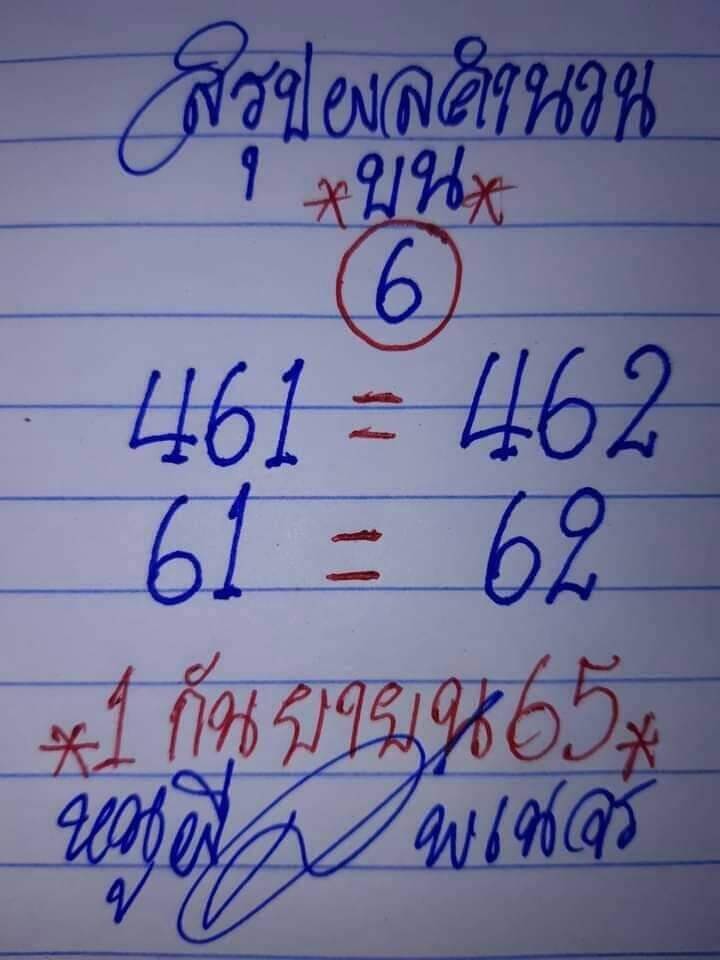 สรุปผลคำนวน
*บน*
6
461 = 462
61 = 62
*1 กันยายน 65*
หนูผี พเนจร